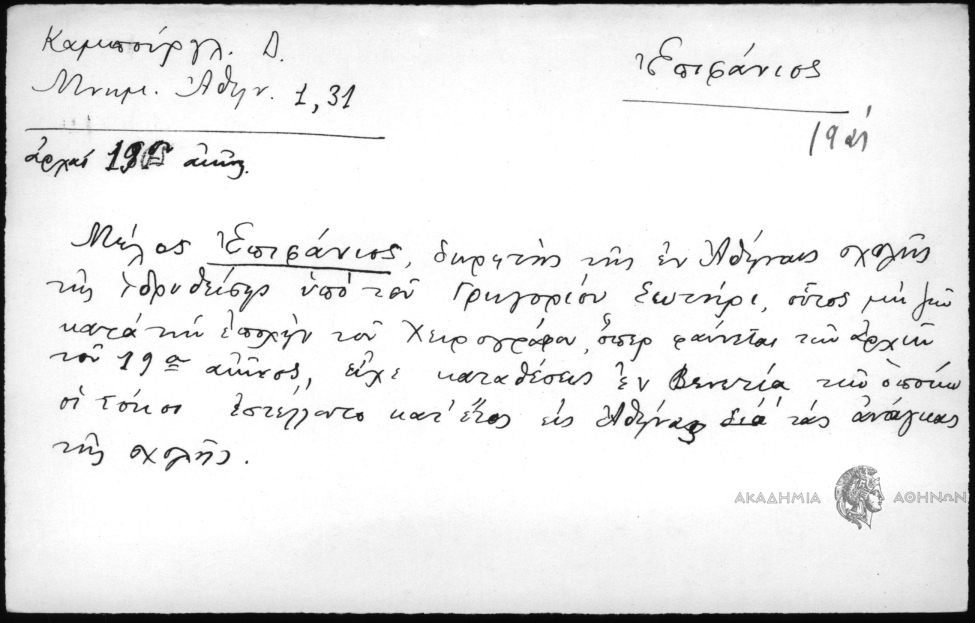 Καμπούργλ. Δ.
Μνημ. Ἀθην. 1, 31
Ἐπιφάνιος
19 αἰ
ἀρχαί 19 αἰῶν.
Μέγας Ἐπιφάνιος, διεφητὴς τῆς ἐν Ἀθήναις σχολῆς
τῆς ἱδρυθείσης ὑπὸ τοῦ Γρηγορίου Σωτήρι, οὗτος μὴ ζῶν
κατὰ τὴν ἐποχὴν τοῦ χειρογράφου, ὅπερ φαίνεται τῶν ἀρχῶν
τοῦ 19ου αἰῶνος, εἶχε καταθέσεις ἐν Βενετίᾳ τῶν ὁποίων
οἱ τόκοι ἐστέλλοντο κατ' ἔτος εἰς Ἀθήνας διὰ τὰς ἀνάγκας
τῆς σχολῆς.
ΑΚΑΔΗΜΙΑ ΑΘΗΝΩΝ